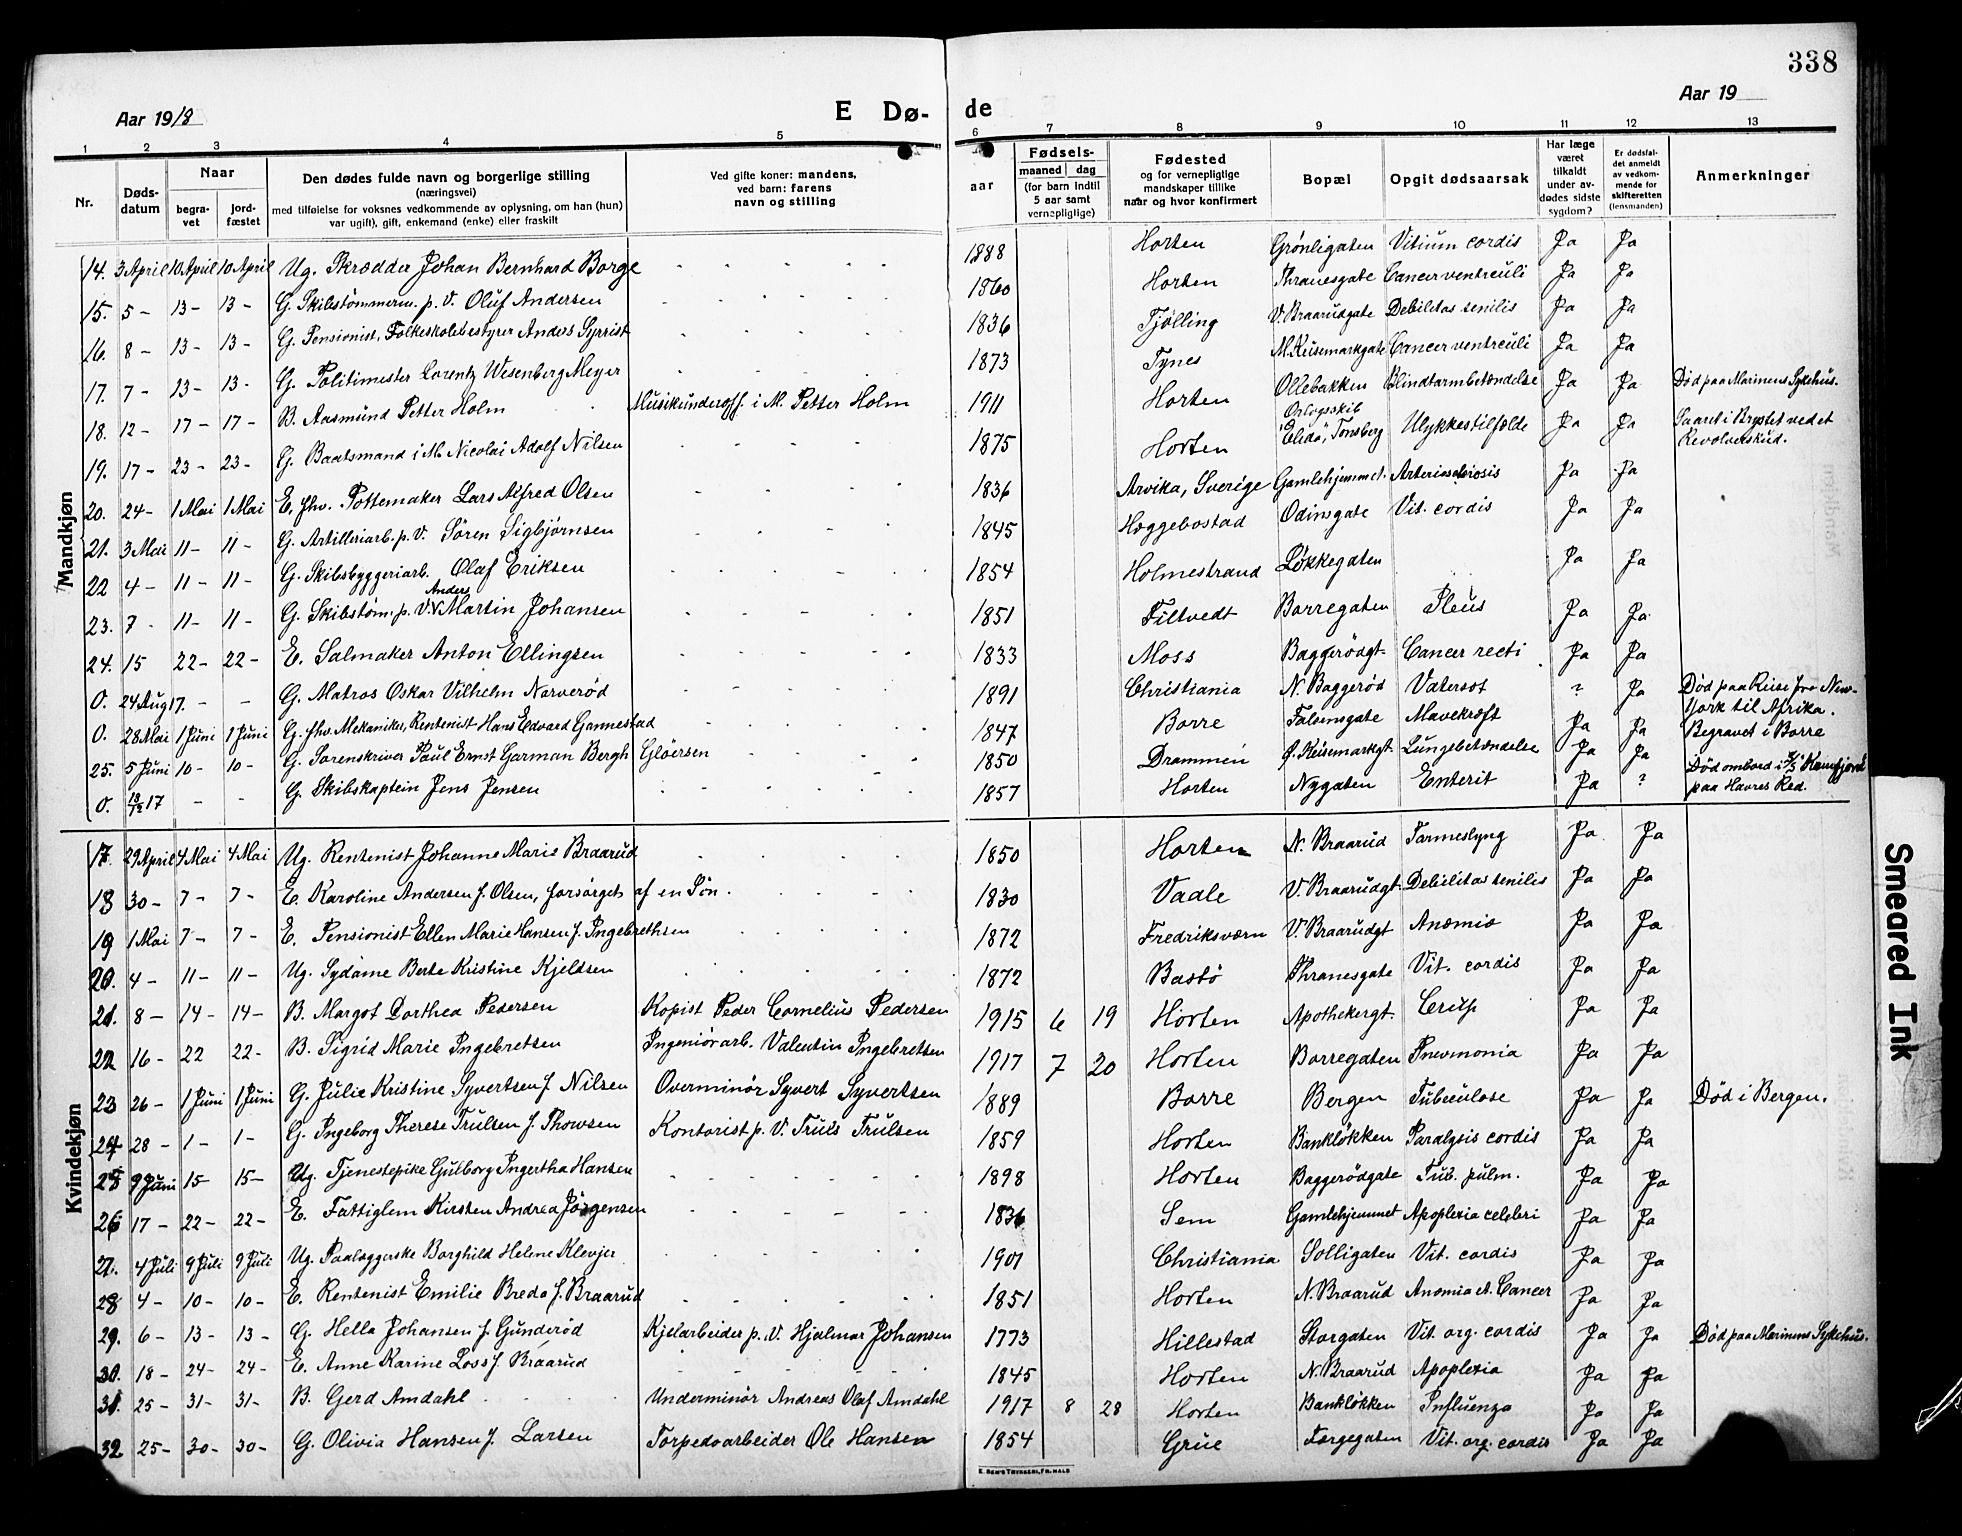 338
Aar 1918 E Dø- de Aar 19
1 2 3 4 5 6 7 8 9 10 11 12 13
Nr. Døds-datum Naar begra-vet jord-fæstet Den dødes fulde navn og borgerlige stilling (næringsvei) med tilføielse for voksnes vedkommende av oplysning, om han (hun) var ugift), gift, enkemand (enke) eller fraskilt Ved gifte koner: mandens, ved barn: farens navn og stilling aar Fødsels- maaned dag (for barn indtil 5 aar samt vernepligtige) Fødested og for vernepligtige mandskaper tillike naar og hvor konfirmert Bopæl Opgit dødsaarsak Har læge været tilkaldt under av-dødes sidste sygdom? Er dødsfal-det anmeldt av vedkom-mende for skifteretten (lensmanden) Anmerkninger
Mandkjøn
14. 3 April 10 April 10 April Ug. Skrædder Johan Bernhard Borge - - - - - 1888 Horten Grønligaten Vitium cordis Ja Ja
15. 5 - 13 - 13 - G. Skibstømmerm. p. V. Oluf Andersen - - - - - 1860 Horten Thranesgate Cancer ventreuli Ja Ja
16. 8 - 13 - 13 - G. Pensionist, Folkeskolebestyrer Anders Syrrist - - - - - 1836 Tjølling V. Braarudgate Debilitas senilis Ja Ja
17. 7 - 13 - 13 - G. Politimester Lorentz Wesenberg Meyer - - - - - 1873 Tynes M. Keisemarkgate Cancer ventreuli Ja Ja
18. 12 - 17 - 17 - B. Aasmund Petter Holm Musikunderoff. i M. Petter Holm 1911 Horten Ollebakken Blindtarmbetændelse Ja Ja Død paa Marinens Sykehus.
19. 17 - 23 - 23 - G. Baatsmand i M. Nicolai Adolf Nilsen - - - - 1875 Horten Orlogsskib "Elida", Tønsberg Ulykkestilfælde Ja Ja Saaret i Brystet ved et Revolverskud.
20. 24 - 1 Mai 1 Mai E. fhv. Pottemaker Lars Alfred Olsen - - - - 1836 Arvika, Sverige Gamlehjemmet. Arteriosclerosis Ja Ja
21. 3 Mai 11 - 11 - G. Artilleriarb. p. V. Søren Sigbjørnsen - - - - 1845 Hæggebostad Odinsgate Vit. cordis Ja Ja
22 4 - 11 - 11 - G. Skibsbyggeriarb. Olaf Eriksen - - - - 1854 Holmestrand Løkkegaten Ja Ja
23. 7 - 11 - 11 - G. Skibstøm. p. V. Anders Martin Johansen - - - - - 1851 Filtvedt Borregaten Ileus Ja Ja
24. 15 22 - 22 - E. Salmaker Anton Ellingsen - - - - - 1833 Moss Baggerødgt. Cancer recti Ja Ja
0. 24 Aug 17. - - G. Matros Oskar Vilhelm Narverød - - - - - 1891 Christiania N. Baggerød Vatersot ? Ja Død paa Reise fra New-York til Afrika.
0. 28 Mai 1 Juni 1 Juni G. fhv. Mekaniker, Rentenist Hans Edvard Gannestad - - - - 1847 Borre Falsensgate Mavekræft Ja Ja Begravet i Borre
25. 5 Juni 10 - 10 - G. Sorenskriver Paul Ernst Garman Bergh Gløersen - - 1850 Drammen Ø. Keisemarkgt. Lungebetændelse Ja Ja
0. 18/12 17 - - G. Skibskaptein Jens Jensen - - - - - 1857 Horten Nygaten Enterit Ja ? Død ombord i D/S Ranfjord paa Havres Red.
Kvindekjøn
17. 29 April 4 Mai 4 Mai Ug. Rentenist Johanne Marie Braarud - - - - 1850 Horten N. Braarud Tarmeslyng Ja Ja
18 30 - 7 - 7 - E. Karoline Andersen f. Olsen, forsørget af en Søn. - - - 1830 Vaale V. Braarudgt. Debilitas senilis Ja Ja
19 1 Mai 7 - 7 - E. Pensionist Ellen Marie Hansen f. Ingebrethsen - - - - 1872 Fredriksværn V. Braarudgt Anæmia Ja Ja
20. 4 - 11 - 11 - Ug. Sydame Berte Kristine Kjeldsen - - - - - 1872 Bastø Thranesgate Vit. cordis Ja Ja
21. 8 - 14 - 14 - B. Margot Dorthea Pedersen Kopist Peder Cornelius Pedersen 1915 6 19 Horten Apothekergt. Crup Ja Ja
22 16 - 22 22 - B. Sigrid Marie Ingebretsen Ingeniørarb. Valentin Ingebretsen 1917 7 20 Horten Borregaten Pneumonia Ja Ja
23 26 - 1 Juni 1 Juni G. Julie Kristine Syvertsen f. Nilsen Overminør Syvert Syvertsen 1889 Borre Bergen Tubeculose Ja Ja Død i Bergen.
24 28 - 1 - 1 - G. Ingeborg Therese Trulsen f. Thowsen Kontorist p. V. Truls Trulsen 1859 Horten Bankløkken Paralysis cordis Ja Ja
25 9 Juni 15 - 15 - Ug. Tjenestepike Gulborg Ingertha Hansen - - - - - - 1898 Horten Baggerødgate Tub. pulm. Ja Ja
26 17 - 22 - 22 - E. Fattiglem Kirsten Andrea Jørgensen - - - - - 1836 Sem Gamlehjemmet Apoplexia celebri Ja Ja
27. 4 Juli 9 Juli 9 Juli Ug. Paalæggerske Borghild Helene Klevjer - - - - - 1901 Christiania Solligaten Vit. cordis Ja Ja
28 4 - 10 - 10 - E. Rentenist Emilie Breda f. Braarud - - - - - 1851 Horten N. Braarud Anæmia & Cancer Ja Ja
29. 6 - 13 - 13 - G. Hella Johansen f. Gunderød Kjelarbeider p. V. Hjalmar Johansen 1773 Hillestad Storgaten Vit. org. cordis Ja Ja Død paa Marinens Sykehus.
30. 18 - 24 - 24 - E. Anne Karine Loss f. Braarud - - - - - 1845 Horten N. Braarud Apoplexia Ja Ja
31. 25 - 31 - 31 - B. Gerd Amdahl Underminør Andreas Olaf Amdahl 1917 8 28 Horten Bankløkken Influenza Ja Ja
32 25 - 30 - 30 - G. Olivia Hansen f. Larsen Torpedoarbeider Ole Hansen 1854 Grue Torgegaten Vit. org. cordis Ja Ja
E. SEM'S TRYKKERI, FR.HALD
Smeared Ink